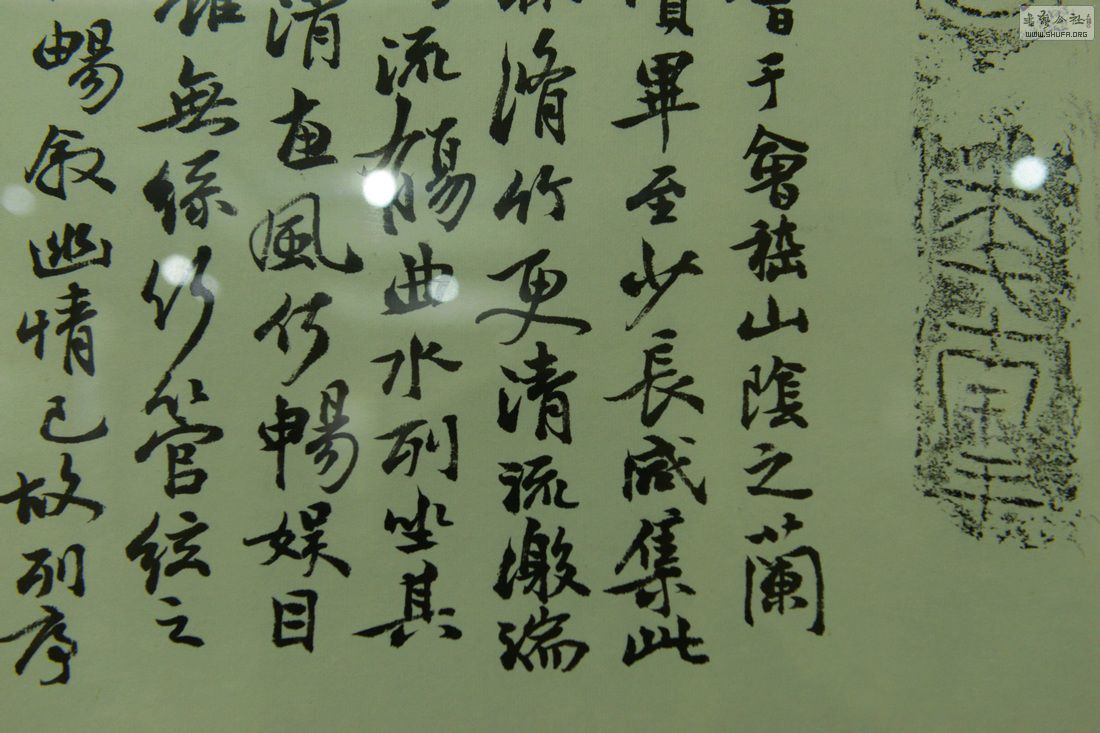 于會嵇山陰之蘭
畢至少長咸集此
脩竹更清流激湍
流觴曲水列坐其
清惠風暢娛目
雖無絲竹管絃之
暢叙幽情已故列序
WWW.SHUFA.ORG